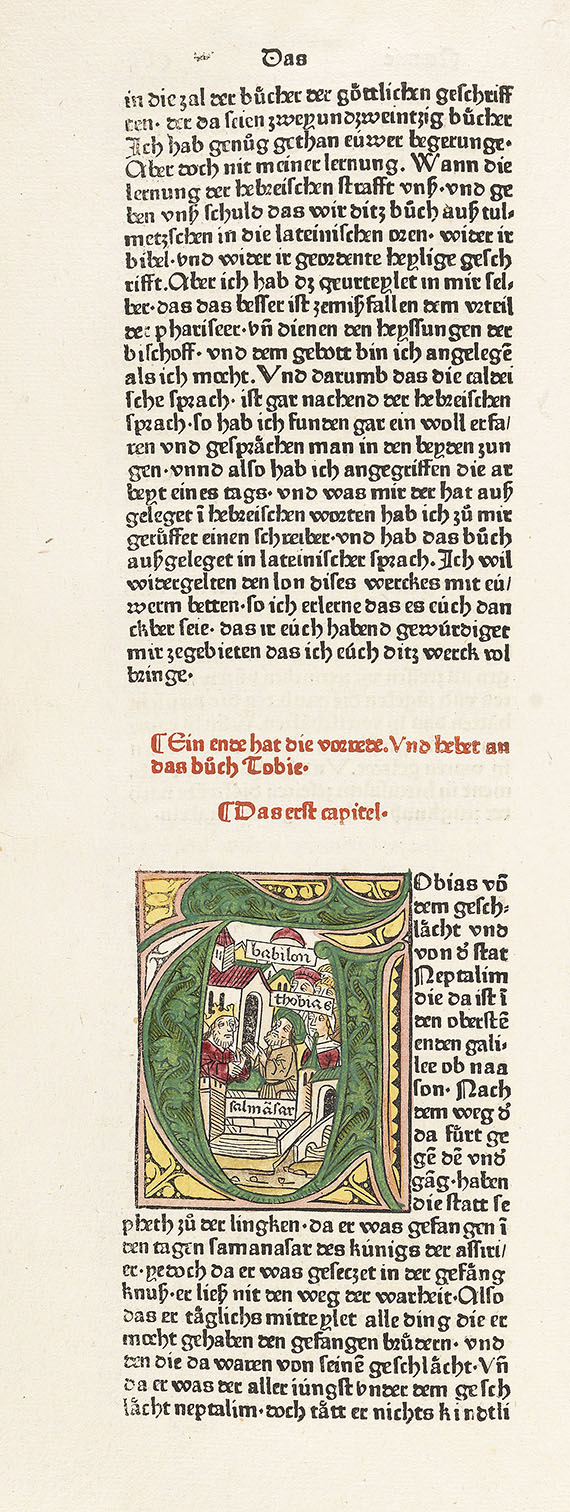 Das
in die zal der bu̓cher der go̓ttlichen geschrifft
ten· der da seien zweyundzweintzig bu̓cher
Ich hab genůg gethan eüwer begerunge·
Aber doch nit meiner lernung. Wann die
lernung der hebreischen strafft vnß·vnd ge
ben vnß schuld das wir ditz bůch auß tul⸗
metzschen in die lateinischen oren· wider ir
bibel·vnd wider ir geordente heylige gesch
rifft. Aber ich hab dz geurteylet in mir sel⸗
ber·das das besser ist zemißfallen dem vrteil
der phariseer·vn̄ dienen den heyssungen der
bischoff· vnd dem gebott bin ich angelegē
als ich mocht. Vnd darumb das die caldei
sche sprach· ist gar nachend der hebreischen
sprach·so hab ich funden gar ein woll erfa/
ren vnd gesprächen man in den beyden zun
gen·vnnd also hab ich angegriffen die ar
beyt eines tags· vnd was mir der hat auß
geleget ī hebreischen worten hab ich zů mir
gerůffet einen schreiber·vnd hab das bůch
außgeleget in lateinischer sprach. Ich wil
widergelten den lon dises werckes mit eü/
werm betten·so ich erlerne das es eüch dan
ckber seie· das ir eüch habend gewürdiget
mir zegebieten das ich eüch ditz werck vol
bringe·
¶Ein ende hat die vorrede. Vnd hebet an
das bůch Tobie·
¶Das erst capitel·
babilon
thobias
salmāsar
TObias vō
dem gesch⸗
lächt vnd
von d̓ stat
Neptalim
die da ist ī
den oberstē
enden gali⸗
lee ob naa
son· Nach
dem weg d̓
da fürt ge
gē dē vnd̓
gāg·haben
die statt se
pheth zů der lingken·da er was gefangen ī
den tagen samanasar des künigs der assiri/
er·yedoch da er was gesetzet in der gefäng
knuß·er ließ nit den weg der warheit·Also
das er täglichs mitteylet alle ding die er
mocht gehaben den gefangen brüdern· vnd
den die da waren von seinē geschlächt·Vn̄
da er was der aller iüngst vnder dem gesch
lächt neptalim·doch tätt er nichts kindtli